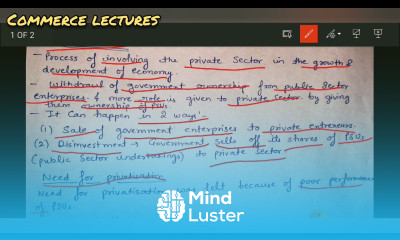 COMMERCE LECTURES
1 OF 2
- Process of involving the private sector in the growth &
development of economy.
- Withdrawal of government ownership from public sector
enterprises & more role is given to private sector by giving
them ownership of PSUs.
- It can happen in 2 ways:-
(1) Sale of government enterprises to private entrepreneurs.
(2) Disinvestment - Government sells off its shares of PSUs
(public sector undertakings) to private sector
Need for privatisation
Need for privatisation was felt because of poor performance
of PSUs.
Mind
Luster